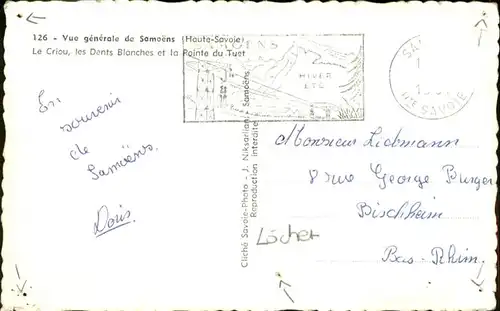 126 - Vue générale de Samoëns (Haute-Savoie)
Le Criou, les Dents Blanches et la Pointe du Tuet
HIVER
HTE SAVOIE
En
souvenir
de
Samoëns.
Doris.
Cliché Savoie-Photo - J. Niksarlian, Samoëns
Reproduction interdite
Monsieur Liebmann
8 rue George Burger
Bischheim
Bas-Rhin.
Löcher